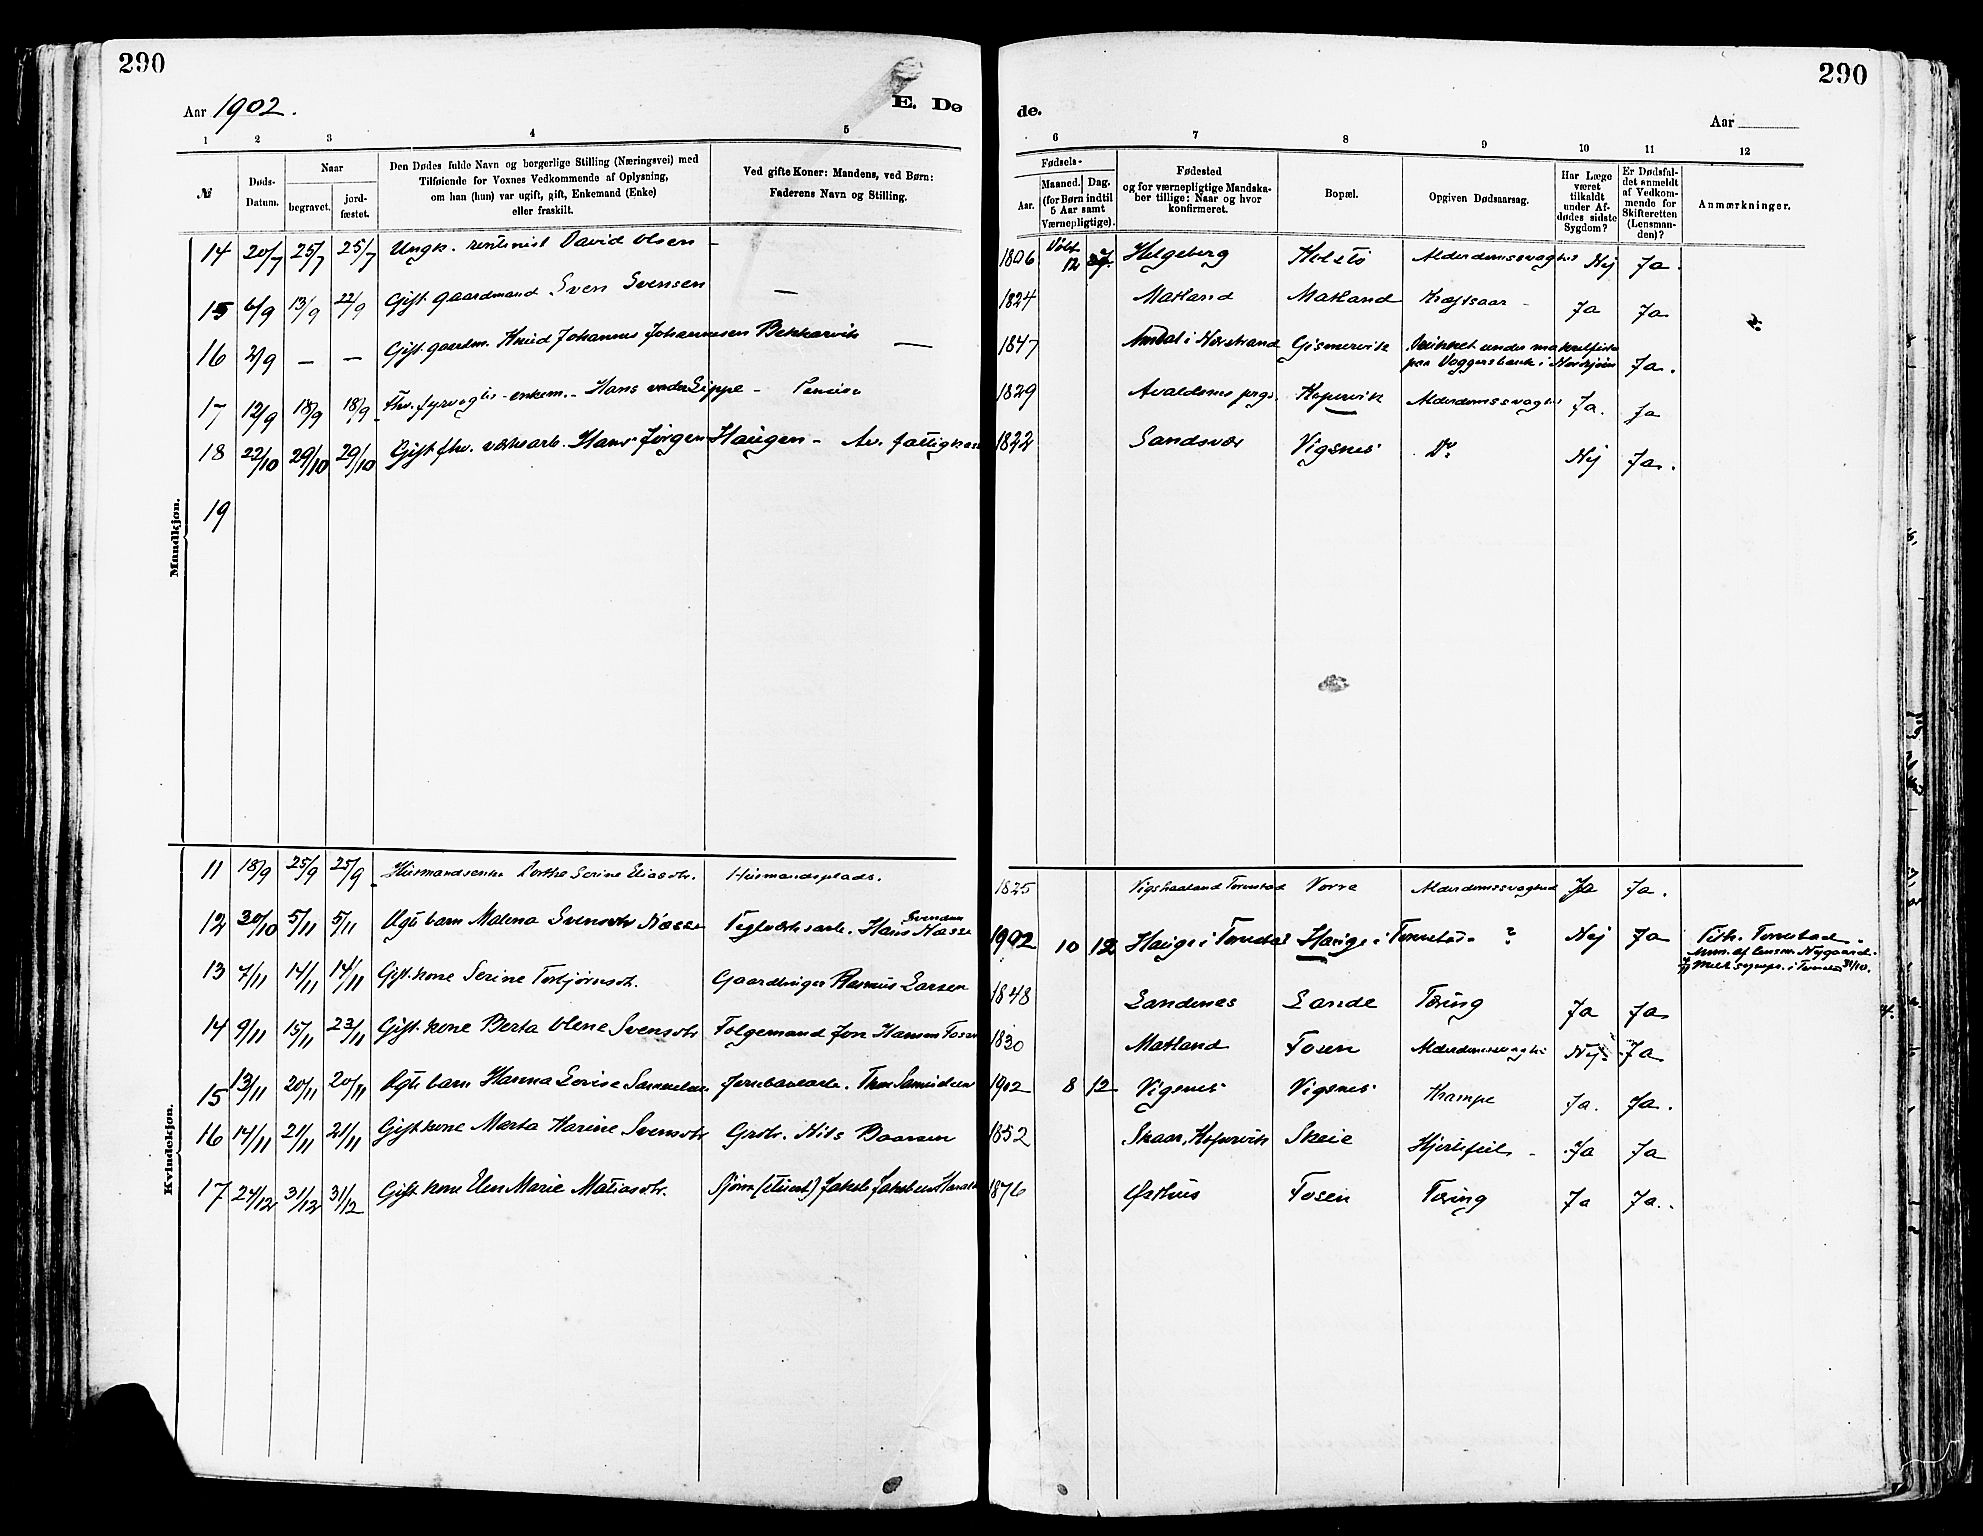 290
290
Aar 1902.
E. Dø
de.
Aar
1 2 3 4 5 6 7 8 9 10 11 12
№
Døds-Datum.
Naar
begravet.
jordfæstet.
Den Dødes fulde Navn og borgerlige Stilling (Næringsvei) med
Tilføiende for Voxnes Vedkommende af Oplysning,
om han (hun) var ugift, gift, Enkemand (Enke)
eller fraskilt.
Ved gifte Koner: Mandens, ved Børn:
Faderens Navn og Stilling.
Fødsels-
Aar.
Maaned. Dag.
(for Børn indtil
5 Aar samt
Værnepligtige).
Fødested
og for værnepligtige Mandska-
ber tillige: Naar og hvor
konfirmeret.
Bopæl.
Opgiven Dødsaarsag.
Har Læge
været
tilkaldt
under Af-
dødes sidste
Sygdom?
Er Dødsfal-
det anmeldt
af Vedkom-
mende for
Skifteretten
(Lensman-
den)?
Anmærkninger.
Mandkjøn.
14 20/7 25/7 25/7 Ungk. rentenist David Olsen – 1806 12 Helgeberg Alderdomssvaghed Nej Ja.
15 6/9 13/9 22/9 Gift gaardmand Sven Svensen — 1824 Matland Matland Kræftsaar – Ja Ja
16 2/9 — — Gift. gaardm. Knud Johannes Johannesen Bekkarvik — 1847 i Nerstrand Gismervik Druknet under makrelfiske
paa i Nordsjøen Ja.
17 12/9 18/9 18/9 Fhv. fyrvogter – enkem. – Hans von der Lippe – Pension 1829 Avaldsnes prgj. Kopervik Alderdomssvaghed Ja. Ja
18 22/10 29/10 29/10 Gift fhv. værksarb. Hans Jørgen Haugen – Av. fattigkas 1822 Sandsvær Vigsnes Do Nej Ja.
19
Kvindekjøn.
11 18/9 25/9 25/9 Husmandsenke Dorthe Serine Eliasdtr. Husmandsplads. 1825 Vigshaaland Torvestad Vorre Alderdomssvaghed Ja Ja.
12 30/10 5/11 5/11 Ægte barn Malena Svensdtr Næsse Teglværksarb. Hans Svendsen Næsse 1902 10 12 Hauge i Torvestad Hauge i Torvestad ? Nej Ja Torvestad
af lensm. Nygaard
13 7/11 14/11 14/11 Gift. kone Serine Torbjørnsdt. Gaardbruger Rasmus Larsen 1848 Sandenes Lande Tæring Ja Ja
14 9/11 15/11 23/11 Gift. kone Berta Olene Svensdtr Følgemand Jon Hansen Fosen 1830 Matland Fosen Alderdomssvaghed Nej Ja
15 13/11 20/11 20/11 Ægte barn Hanna Lovise Samuelsen Jernbanearb. Thor Samuelsen 1902 8 12 Vigsnes Vigsnes Krampe Ja. Ja.
16 14/11 21/11 21/11 Gift kone Marta Karine Svensdtr Grbr. Nils Baarsen 1852 Skaar, Kopervik Skeie Hjertefeil – Ja Ja
17 24/12 31/12 31/12 Gift kone Elen Marie Matiasdtr. Sjøm. Jakob Jakobsen 1876 Østhus Fosen Tæring Ja Ja.